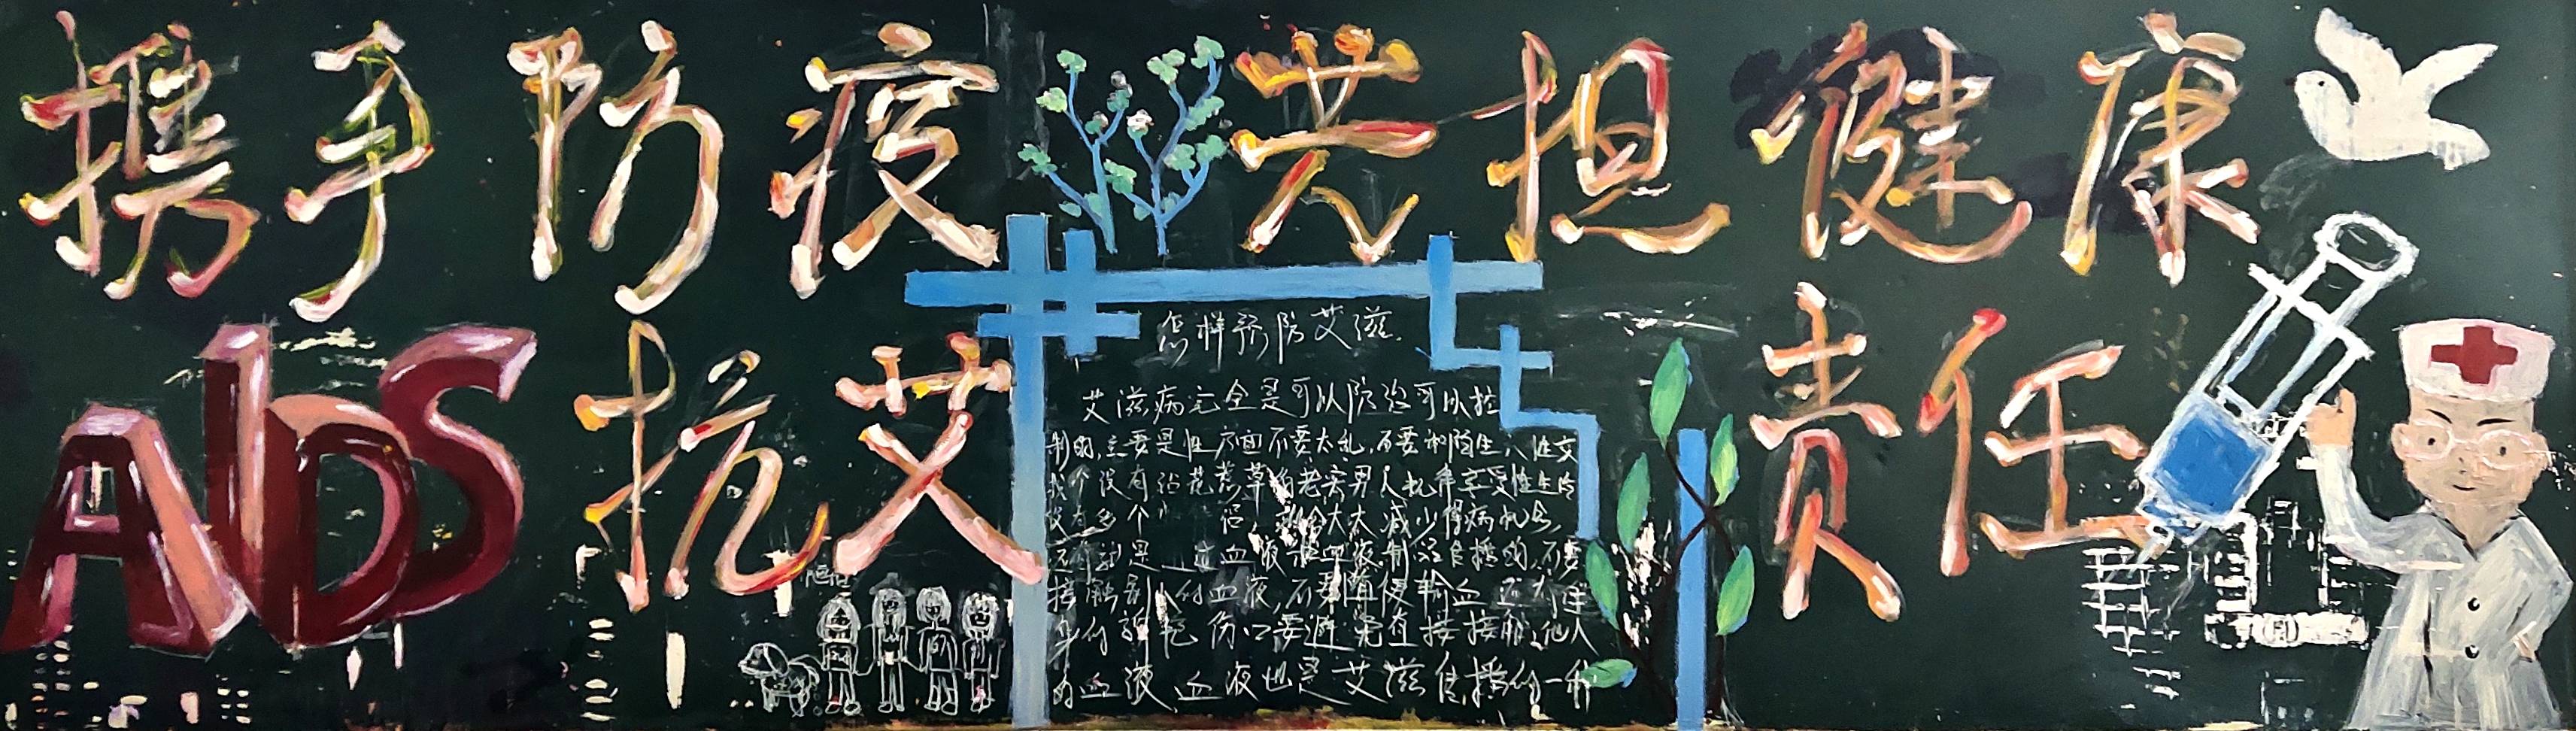 携手防疫 共担健康
AIDS 抗艾 责任
怎样预防艾滋.
艾滋病完全是可以防治可以控
制的,主要是性方面不要太乱,不要和陌生人性交
没有拈花惹草的老实男人就单享受性生活
没有多个 侣, 会大大减少得病机会,
是 血液 血液制品传播的,不要
接触别人的血液,不要随便输血
身的 伤口要避免直接接触他人
的血液,血液也是艾滋传播的一种